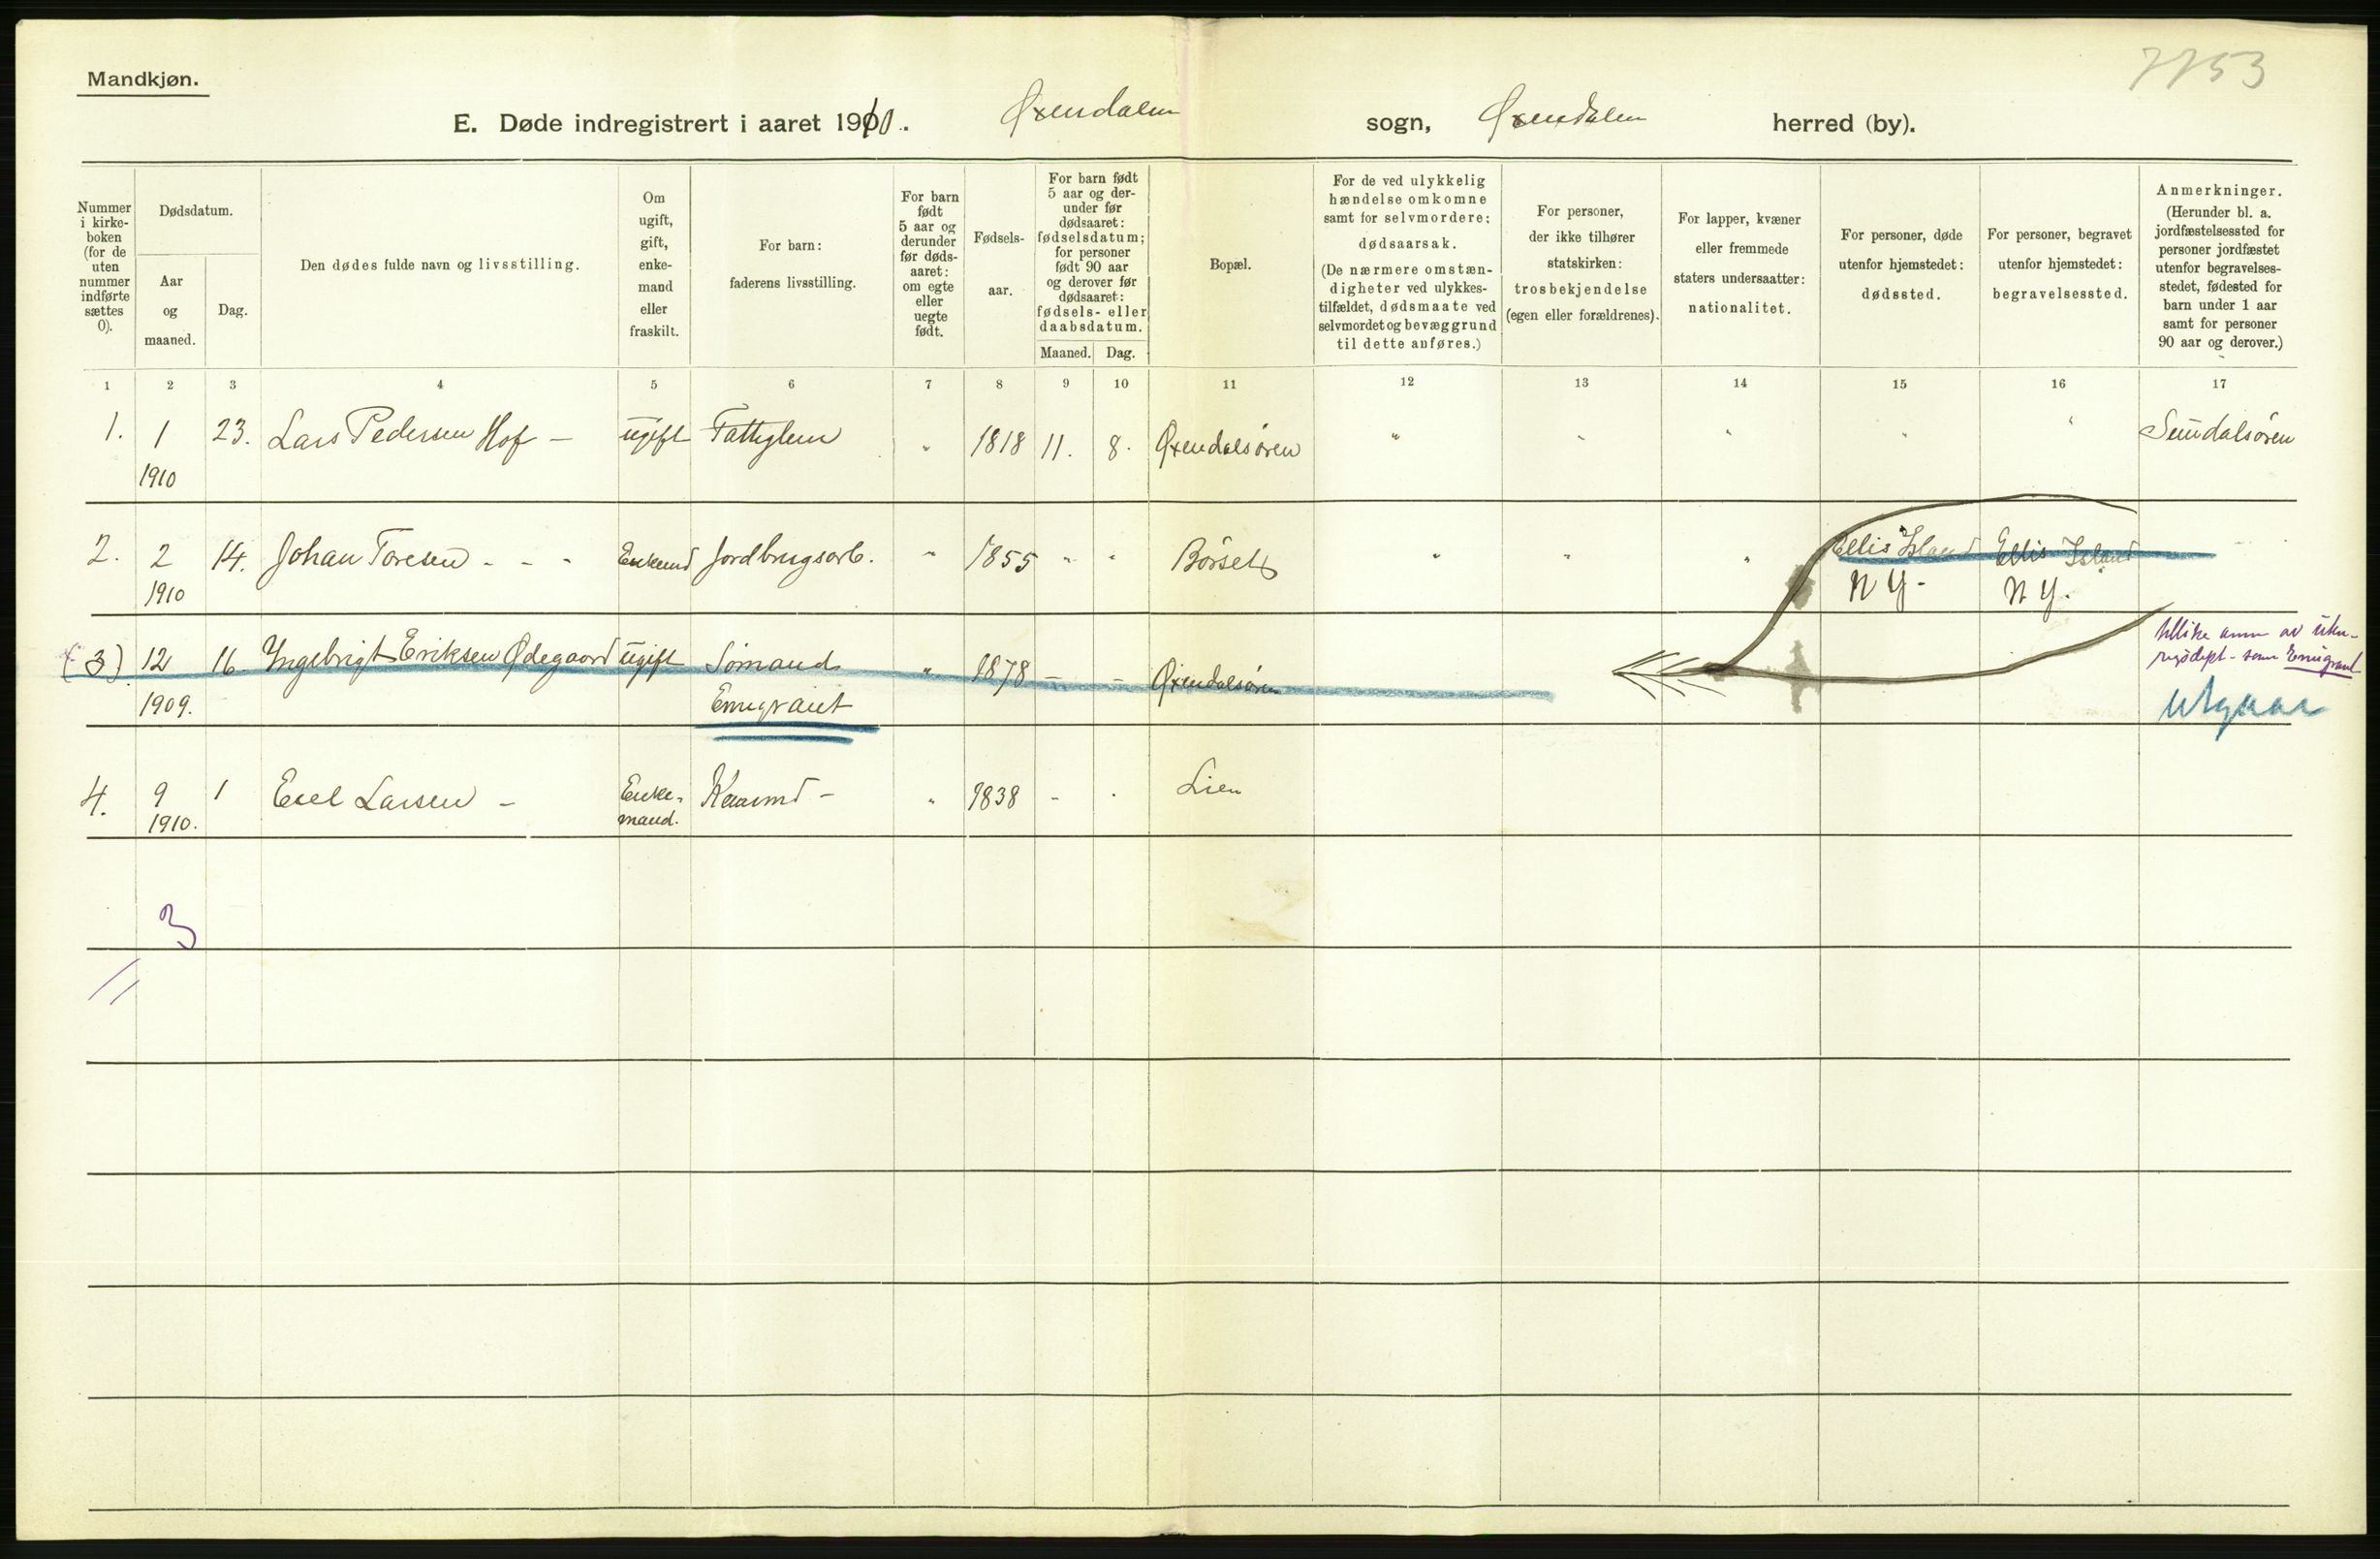 7753
Mandkjøn.
E. Døde indregistrert i aaret 1910. Øxendalen sogn, Øxendalen herred (by).
Nummer i kirke- boken (for de uten nummer indførte sættes 0).
Dødsdatum.
Aar og maaned.
Dag.
Den dødes fulde navn og livsstilling.
Om ugift, gift, enke- mand eller fraskilt.
For barn: faderens livsstilling.
For barn født 5 aar og derunder før døds- aaret: om egte eller uegte født.
Fødsels- aar.
For barn født 5 aar og der- under før dødsaaret: fødselsdatum; for personer født 90 aar og derover før dødsaaret: fødsels- eller daabsdatum.
Maaned. Dag.
Bopæl.
For de ved ulykkelig hændelse omkomne samt for selvmordere: dødsaarsak. (De nærmere omstæn- digheter ved ulykkes- tilfældet, dødsmaate ved selvmordet og bevæggrund til dette anføres.)
For personer, der ikke tilhører statskirken: trosbekjendelse (egen eller forældrenes).
For lapper, kvæner eller fremmede staters undersaatter: nationalitet.
For personer, døde utenfor hjemstedet: dødssted.
For personer, begravet utenfor hjemstedet: begravelsessted.
Anmerkninger. (Herunder bl. a. jordfæstelsessted for personer jordfæstet utenfor begravelses- stedet, fødested for barn under 1 aar samt for personer 90 aar og derover.)
1 2 3 4 5 6 7 8 9 10 11 12 13 14 15 16 17
1. 1 23. Lars Pedersen Hof - ugift Fattiglem " 1818 11. 8. Øxendalsøren " " " " " Sundalsøren
1910
2. 2 14. Johan Toresen - - - Enkemd Jordbrugsarb. " 1855 " " Børset " " " Ellis Island Ellis Island
1910 NY. NY.
(3) 12 16 Yngebrigt Eriksen Ødegaard ugift Sømand " 1878 - - Øxendalsøren
1909. Emigrant
som Emigrant
Utgaar
4. 9 1 Larsen - Enke- mand. - " 1838 - . Lien
1910.
3